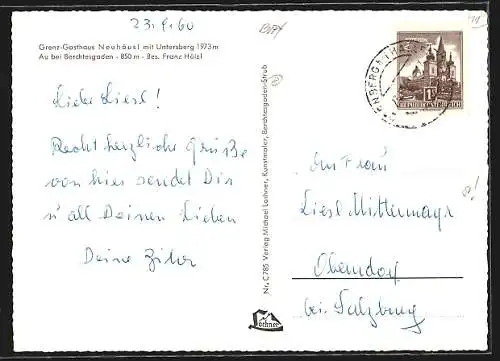 23.9.60
Grenz-Gasthaus Neuhäusl mit Untersberg 1973m
Au bei Berchtesgaden - 850 m - Bes. Franz Hölzl
Liebe Liesl!
Recht herzliche Grüße
von hier sendet Dir
u all Deinen Lieben
Deine
Nr. C785 Verlag Michael Lochner, Kunstmaler, Berchtesgaden-Strub
Lochner
REPUBLIK ÖSTERREICH
An Frau
Liesl Mittermayr
Oberndorf
bei Salzburg